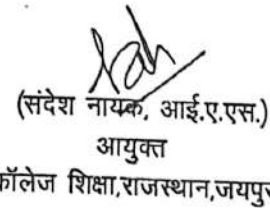 (संदेश नायक, आई.ए.एस.)
आयुक्त
कॉलेज शिक्षा,राजस्थान,जयपुर